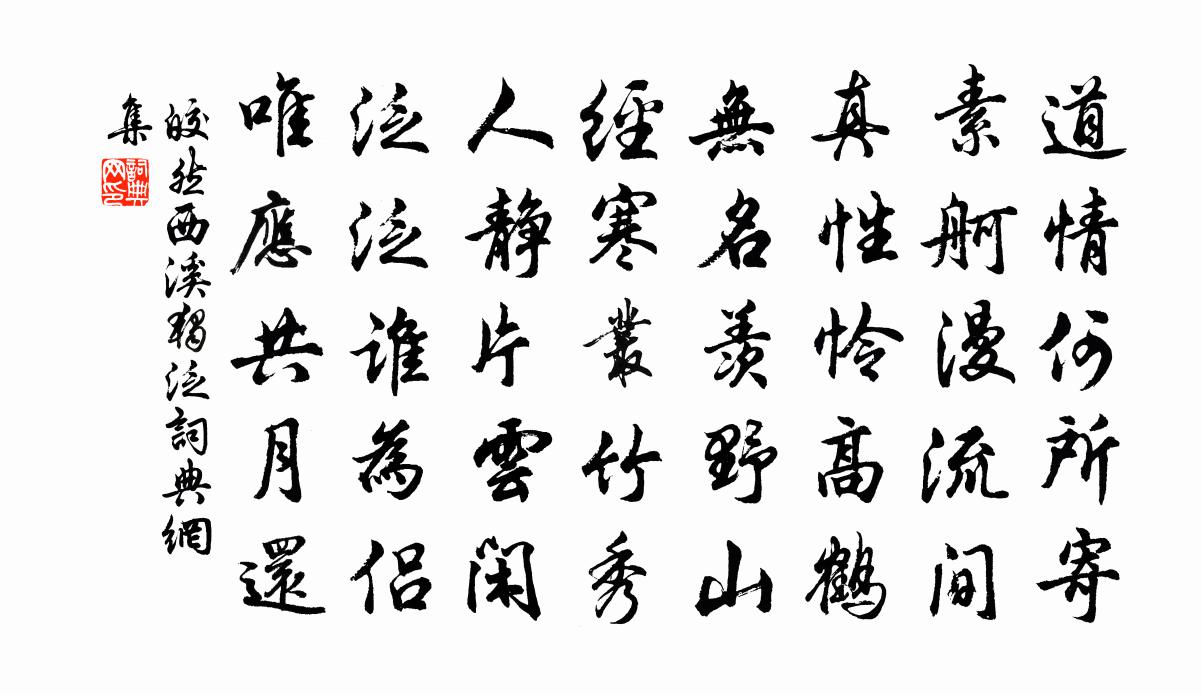 道情何所寄
素舸漫流間
真性怜高鶴
無名羨野山
經寒叢竹秀
人静片雲閑
泛泛誰為侶
唯應共月還
皎然西溪獨泛詞典網
集
詞典
网印